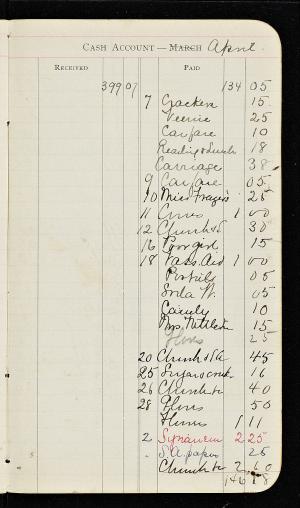 CASH ACCOUNT — MARCH April.
RECEIVED PAID
399 07 134 05
7 Crackers 15
25
Carfare 10
Reading & Lunch 18
Carriage 38
9 Carfare 05
10 Miss Frazers 25
11 1 00
12 Church & 30
16 Poor girl 15
18 Vass. Aid 1 00
05
Soda W. 05
Candy 10
Mrs. Nettleton 15
Gloves 25
20 Church & SA 45
25 Sugar & crack 16
26 Church &c 40
28 Gloves 50
1 11
2 2 25
S.A. paper 25
Church &c 2.60
146 18